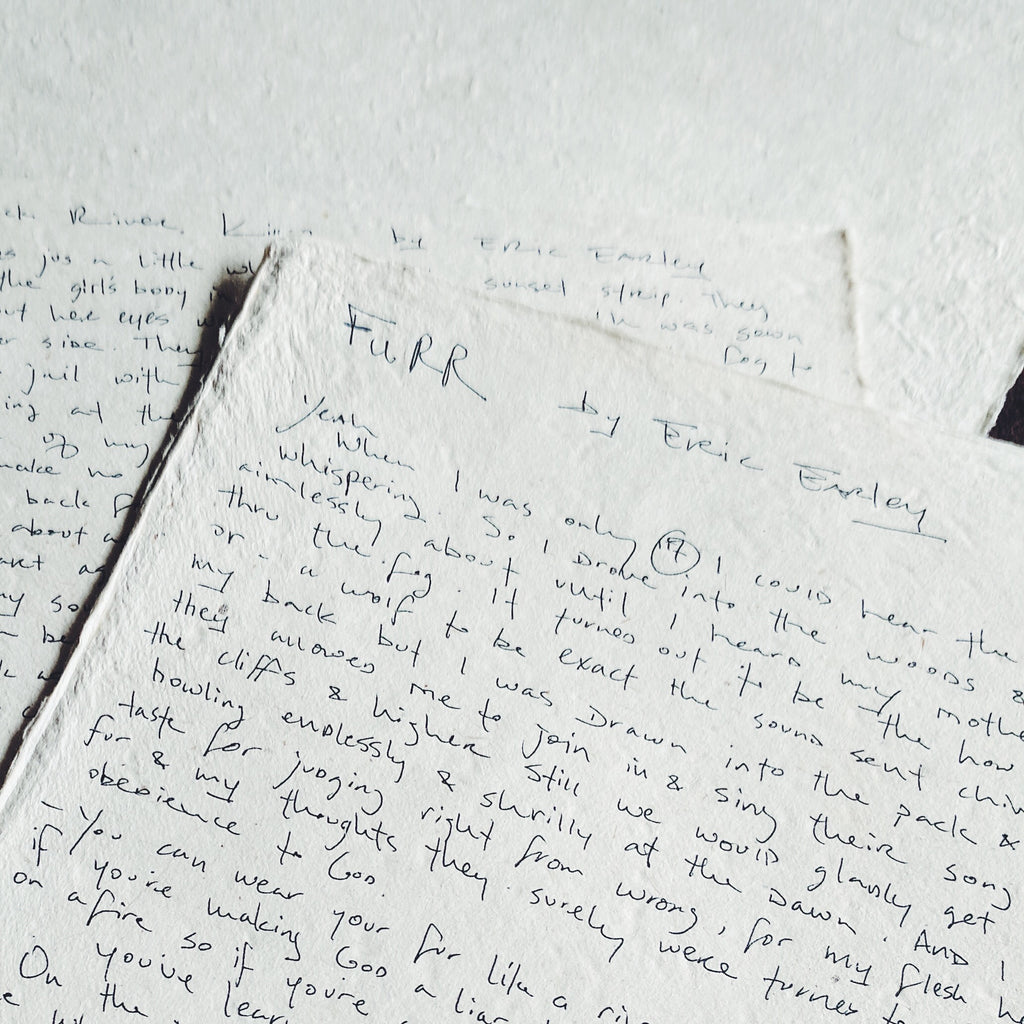 River by Eric Earley
jus a little
the girl's body sunset strip. They
out her eyes I'm was down
side. They Dog to
jail with
ing at the
of my
make no
back
about a
my so
be
FURR
by Eric Earley
Yeah
When I was only 17 I could hear the
whispering. So I Drove into the woods &
aimlessly about until I heard my mothe
thru the fog. It turned out to be the how
or - a wolf to be exact the sound sent chiv
my back but I was Drawn into the pack &
they allowed me to join in & sing their song
the cliffs & higher still we would gladly get
howling endlessly & shrilly at the Dawn. And I
taste for judging right from wrong, for my flesh h
fur & my thoughts they surely were turned to
obedience to God.
- You can wear your fur like a riv
if you're making God a liar
on a fire so if you're
On you've lear
the